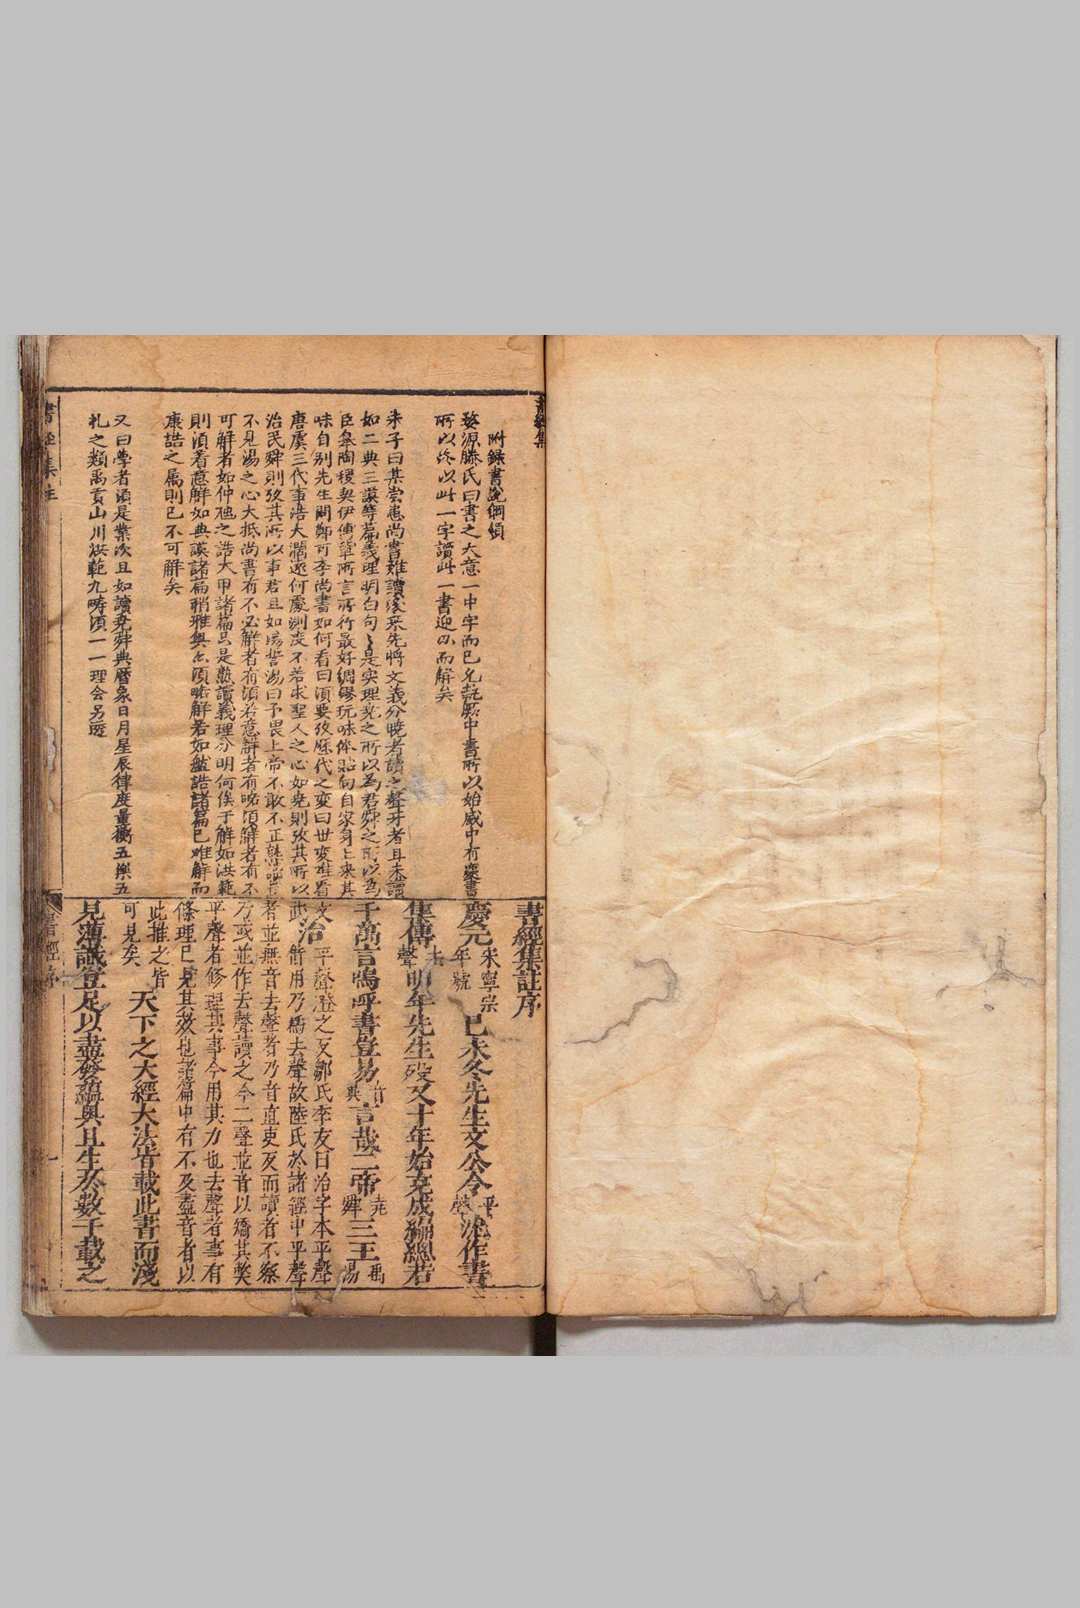 附錄書說綱領
婺源滕氏曰書之大意一中字而已允執厥中書所以始咸中有慶書
所以終以此一字讀此一書迎刃而解矣
朱子曰某嘗患尚書難讀後來先將文義分曉者讀之聱牙者且未讀
如二典三謨等篇義理明白句〻是实理尭之所以為君舜之所以為
臣皐陶稷契伊傅軰所言所行最好綢繆玩味体贴向自家身上来其
味自别先生問鄭可李尚書如何看曰須要攷歴代之变曰世变难看
唐虞三代事浩大濶逺何處測度不若求聖人之心如尭則攷其所以
治民舜則攷其所以事君且如湯誓湯曰予畏上帝不敢不正熟讀豈
不見湯之心大抵尚書有不必觧者有須着意觧者有略須觧者有不
可觧者如仲虺之誥太甲諸篇只是熟讀義理分明何俟于觧如洪範
則須着意觧如典謨諸篇稍雅奥亦須略觧若如盤誥諸篇已难觧而
康誥之属則已不可觧矣
又曰學者須是業次且如讀尭舜典曆象日月星辰律度量衡五樂五
礼之類禹貢山川洪範九畴須一一理会另透
書經集註序
慶元宋寧宗年號已未冬先生文公令平聲沈作書
集傳去聲明年先生殁又十年始克成編總若
干萬言嗚呼書豈易音異言哉二帝尭舜三王禹湯
文
此治平聲澄之反鄒氏季友曰治字本平聲
借用乃為去聲故陸氏於諸經中平聲
者並無音去聲者乃音直吏反而讀者不察
乃或並作去聲讀之今二聲並音以矯其弊
平聲者修理其事今用其力也去聲者事有
條理已見其效也諸篇中有不及盡音者以
此推之皆
可見矣天下之大經大法皆載此書而淺
見薄識豈足以盡發藴奥且生於數千載之